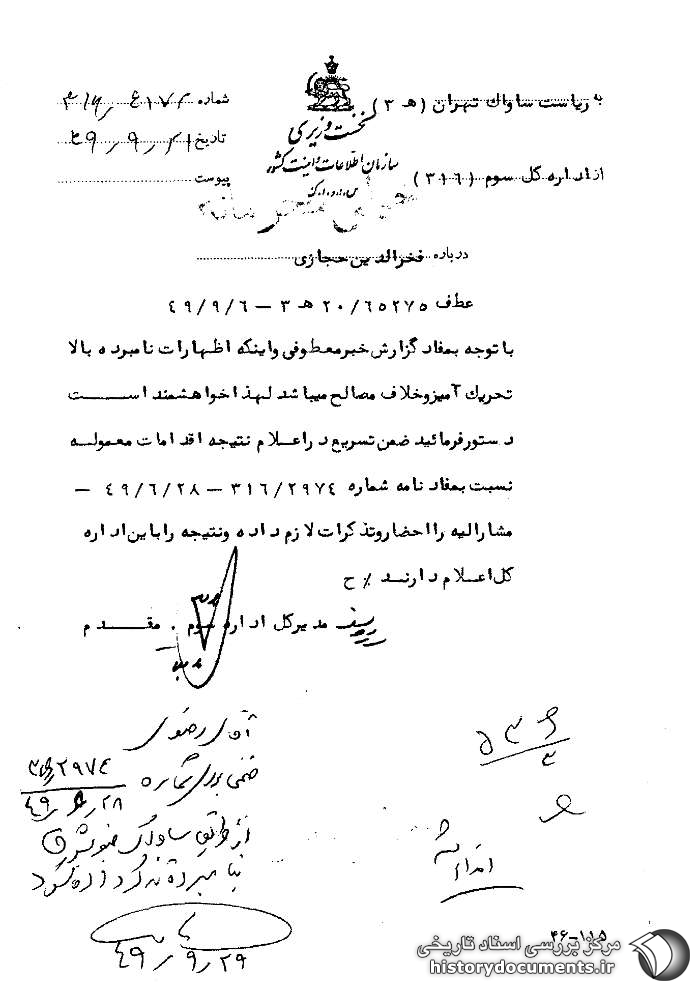 به ریاست ساواك تهران (ه ۳)
از اداره کل سوم (۳۱۶)
نخست وزیری
سازمان اطلاعات و امنیت کشور
س.ا.و.ا.ک
شماره
تاریخ ۴۹/۹/۲۱
پیوست
درباره فخرالدین حجازی
عطف ۲۰/۶۵۲۷۵ ه ۳ – ۴۹/۹/۶
با توجه بمفاد گزارش خبر معطوفی واینکه اظهارات نامبرده بالا
تحریك آمیز وخلاف مصالح میباشد لهذا خواهشمند است
دستور فرمائید ضمن تسریع در اعلام نتیجه اقدامات معموله
نسبت بمفاد نامه شماره ۳۱۶/۲۹۷۴ – ۴۹/۶/۲۸ –
مشارالیه را احضار وتذکرات لازم داده ونتیجه را باین اداره
کل اعلام دارند ٪ ح
مدیرکل اداره سوم . مقدم
آقای رضوی
ضمن شماره ۳۱۶/۲۹۷۴
۴۹/۶/۲۸
از طریق ساواک
نامبرده تذکر داده شود
۴۹/۹/۲۹
۵۳۶
۳
۴۶-۱۱۵
مرکز بررسی اسناد تاریخی
historydocuments.ir